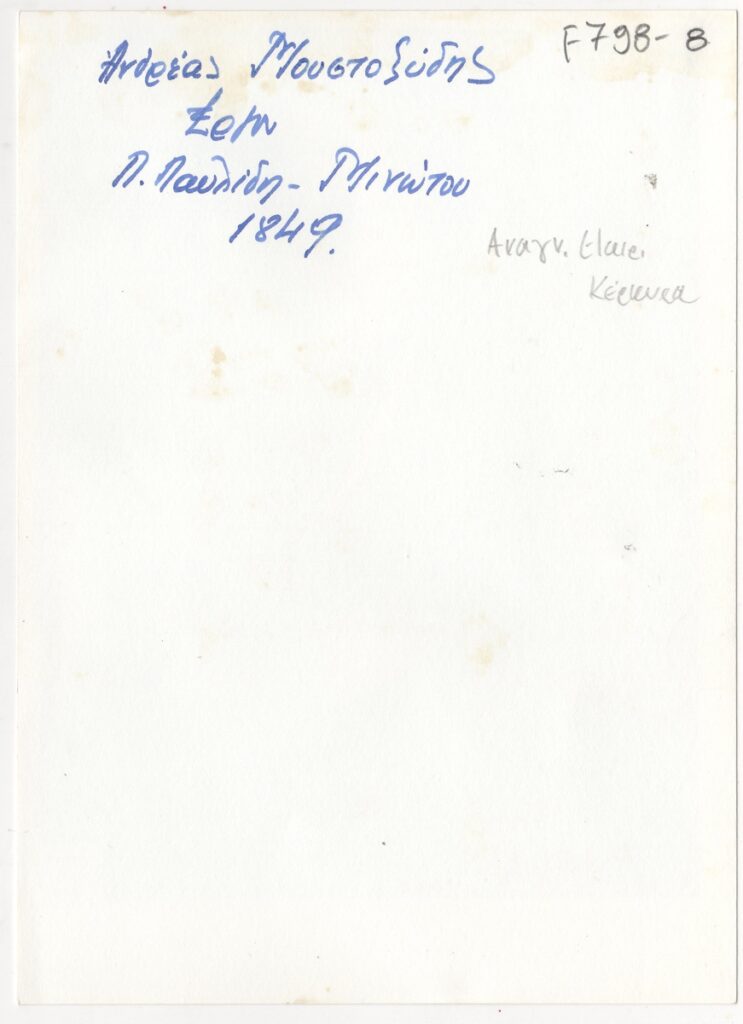 F798-8
Ἀνδρέας Μουστοξύδης
Ἔργον
Π. Παυλίδη - Μινώτου
1849.
Αναγν. Εταιρ.
Κέρκυρα